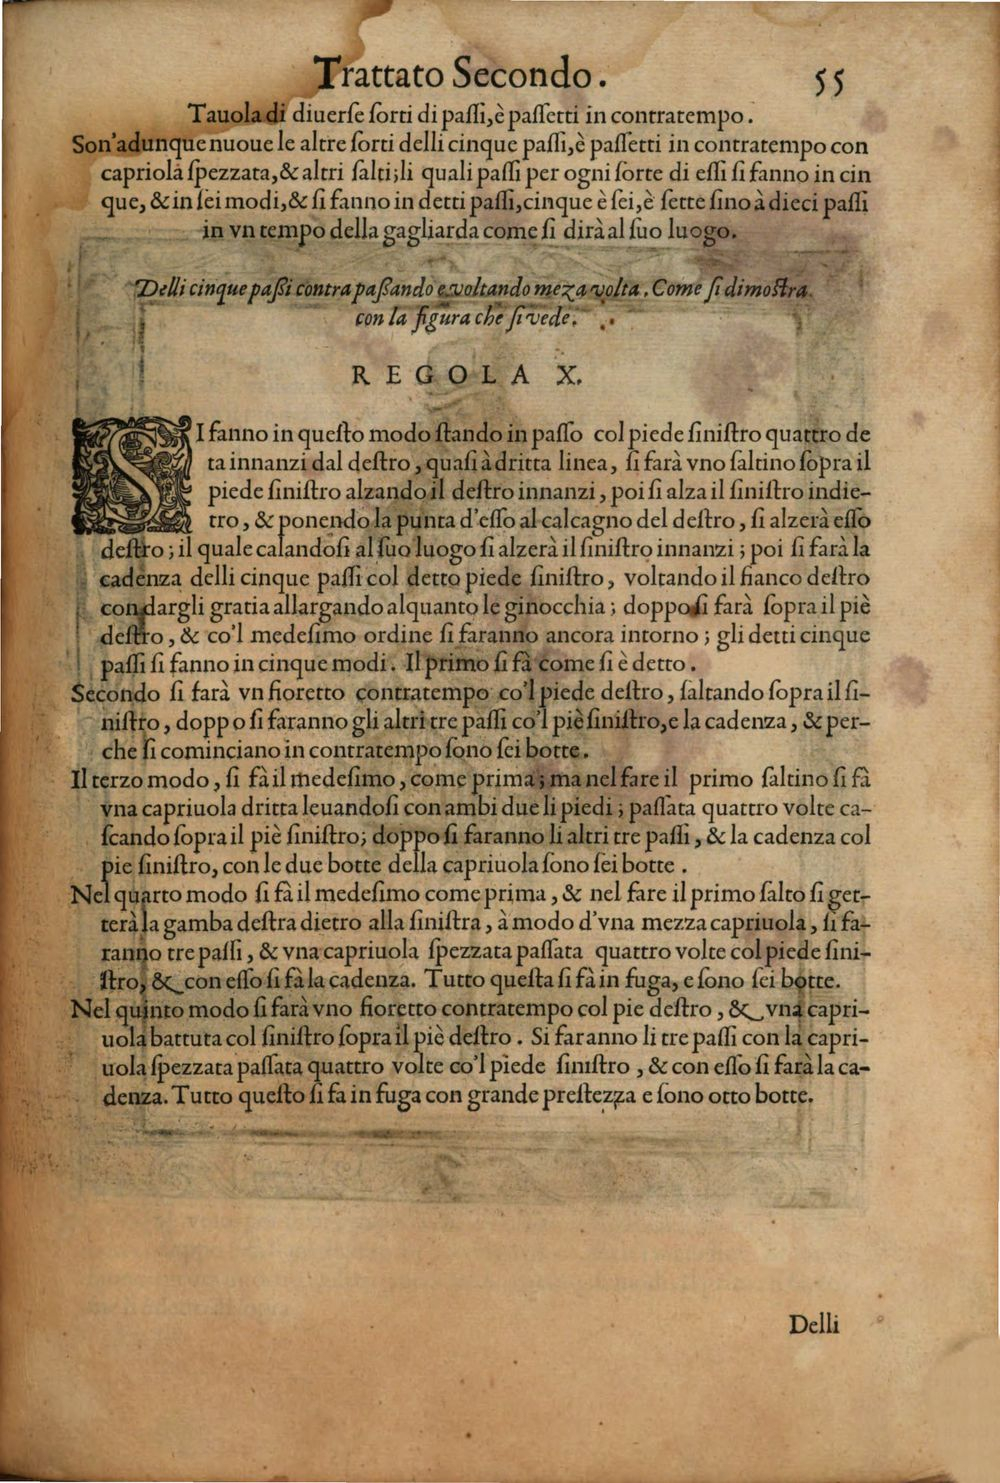 Trattato Secondo. 55
Tauola di diuerſe ſorti di paſſi, è paſſetti in contratempo.
Son'adunque nuoue le altre ſorti delli cinque paſſi, è paſſetti in contratempo con
capriola ſpezzata, & altri ſalti; li quali paſſi per ogni ſorte di eſſi ſi fanno in cin
que, & in ſei modi, & ſi fanno in detti paſſi, cinque è ſei, è ſette ſino à dieci paſſi
in vn tempo della gagliarda come ſi dirà al ſuo luogo.
Delli cinque paßi contrapaßando e voltando meza volta. Come ſi dimoſtra
con la figura che ſi vede.
REGOLA X.
SI fanno in queſto modo ſtando in paſſo col piede ſiniſtro quattro de
ta innanzi dal deſtro, quaſi à dritta linea, ſi farà vno ſaltino ſopra il
piede ſiniſtro alzando il deſtro innanzi, poi ſi alza il ſiniſtro indie-
tro, & ponendo la punta d'eſſo al calcagno del deſtro, ſi alzerà eſſo
deſtro; il quale calandoſi al ſuo luogo ſi alzerà il ſiniſtro innanzi; poi ſi farà la
cadenza delli cinque paſſi col detto piede ſiniſtro, voltando il fianco deſtro
con dargli gratia allargando alquanto le ginocchia; doppo ſi farà ſopra il piè
deſtro, & co'l medeſimo ordine ſi faranno ancora intorno; gli detti cinque
paſſi ſi fanno in cinque modi. Il primo ſi fà come ſi è detto.
Secondo ſi farà vn fioretto contratempo co'l piede deſtro, ſaltando ſopra il ſi-
niſtro, doppo ſi faranno gli altri tre paſſi co'l piè ſiniſtro, e la cadenza, & per-
che ſi cominciano in contratempo ſono ſei botte.
Il terzo modo, ſi fà il medeſimo, come prima; ma nel fare il primo ſaltino ſi fà
vna capriuola dritta leuandoſi con ambi due li piedi; paſſata quattro volte ca-
ſcando ſopra il piè ſiniſtro; doppo ſi faranno li altri tre paſſi, & la cadenza col
pie ſiniſtro, con le due botte della capriuola ſono ſei botte.
Nel quarto modo ſi fà il medeſimo come prima, & nel fare il primo ſalto ſi get-
terà la gamba deſtra dietro alla ſiniſtra, à modo d'vna mezza capriuola, ſi fa-
ranno tre paſſi, & vna capriuola ſpezzata paſſata quattro volte col piede ſini-
ſtro, & con eſſo ſi fà la cadenza. Tutto queſta ſi fà in fuga, e ſono ſei botte.
Nel quinto modo ſi farà vno fioretto contratempo col pie deſtro, & vna capri-
uola battuta col ſiniſtro ſopra il piè deſtro. Si faranno li tre paſſi con la capri-
uola ſpezzata paſſata quattro volte co'l piede ſiniſtro, & con eſſo ſi farà la ca-
denza. Tutto queſto ſi fa in fuga con grande preſtezza e ſono otto botte.
Delli